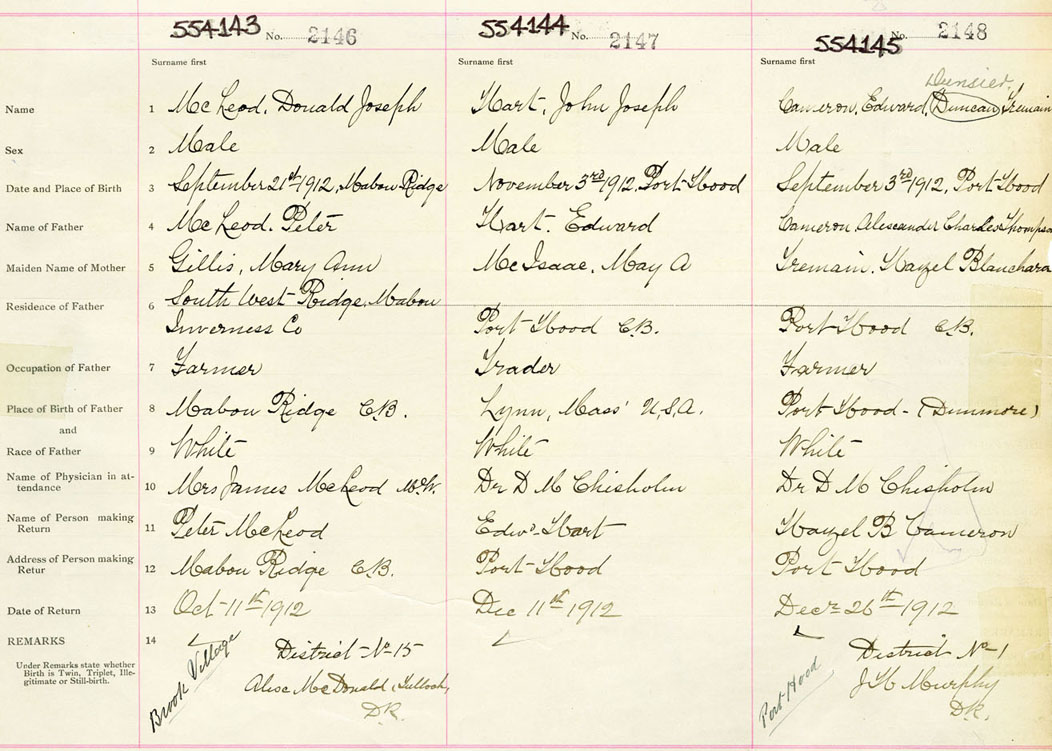 554143 No. 2146
554144 No. 2147
554145 No. 2148
Surname first
Surname first
Surname first
Name 1 McLeod, Donald Joseph
Hart, John Joseph
Cameron, Edward, Duncan, Tremain
Sex 2 Male
Male
Male
Date and Place of Birth 3 September 21st 1912, Mabou Ridge
November 3rd 1912, Port Hood
September 3rd 1912, Port Hood
Name of Father 4 McLeod, Peter
Hart, Edward
Cameron, Alexander Charles Thompson
Maiden Name of Mother 5 Gillis, Mary Ann
McIsaac, May A
Tremain, Hazel Blanchard
Residence of Father 6 South West Ridge, Mabou
Inverness Co
Port Hood C.B.
Port Hood C.B.
Occupation of Father 7 Farmer
Trader
Farmer
Place of Birth of Father 8 Mabou Ridge C.B.
Lynn, Mass' U.S.A.
Port Hood - (Dunmore)
and
Race of Father 9 White
White
White
Name of Physician in at-
tendance 10 Mrs James McLeod M.W.
Dr D M Chisholm
Dr D M Chisholm
Name of Person making
Return 11 Peter McLeod
Edwd Hart
Hazel B Cameron
Address of Person making
Retur 12 Mabou Ridge C.B.
Port Hood
Port Hood
Date of Return 13 Oct 11th 1912
Dec 11th 1912
Decr 26th 1912
REMARKS 14
Under Remarks state whether
Birth is Twin, Triplet, Ille-
gitimate or Still-birth.
Brook Village
District No 15
McDonald (Tulloch)
D.R.
Port Hood
District No 1
Murphy
D.R.